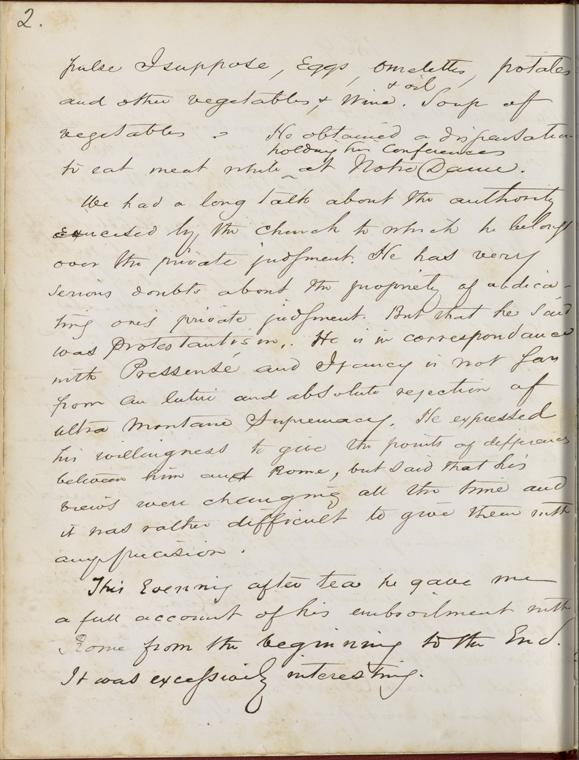 2.
pulse I suppose, Eggs, Omelettes, potatoes
& oil
and other vegetables, & Wine. Soup of
vegetables. He obtained a dispensation
holding his Conferences
to eat meat while at Notre Dame.
We had a long talk about the authority
exercised by the church to which he belongs
over the private judgment. He has very
serious doubts about the propriety of abdica-
ting one's private judgment. But that he said
was Protestantism. He is in correspondance
with Pressensé and I fancy is not far
from an entire and absolute rejection of
ultra Montane Supremacy. He expressed
his willingness to give the points of difference
between him and Rome, but said that his
views were changing all the time and
it was rather difficult to give them with
any precision.
This Evening after tea he gave me
a full account of his embroilment with
Rome from the beginning to the End.
It was excessively interesting.